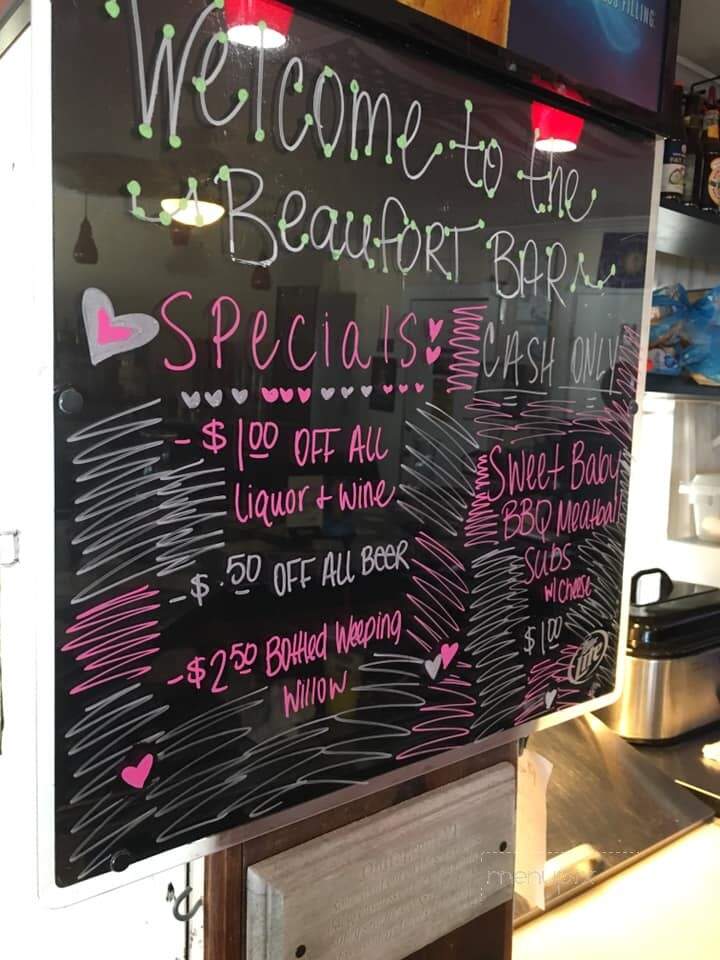 FILLING.
Welcome to the
Beaufort BAR
Specials:
CASH ONLY
- $1.00 OFF All
Liquor + Wine
- $.50 OFF ALL BEER
- $2.50 Bottled Weeping
Willow
Sweet Baby
BBQ Meatball
Subs
w/ Cheese
$1.00
Lite
menupix